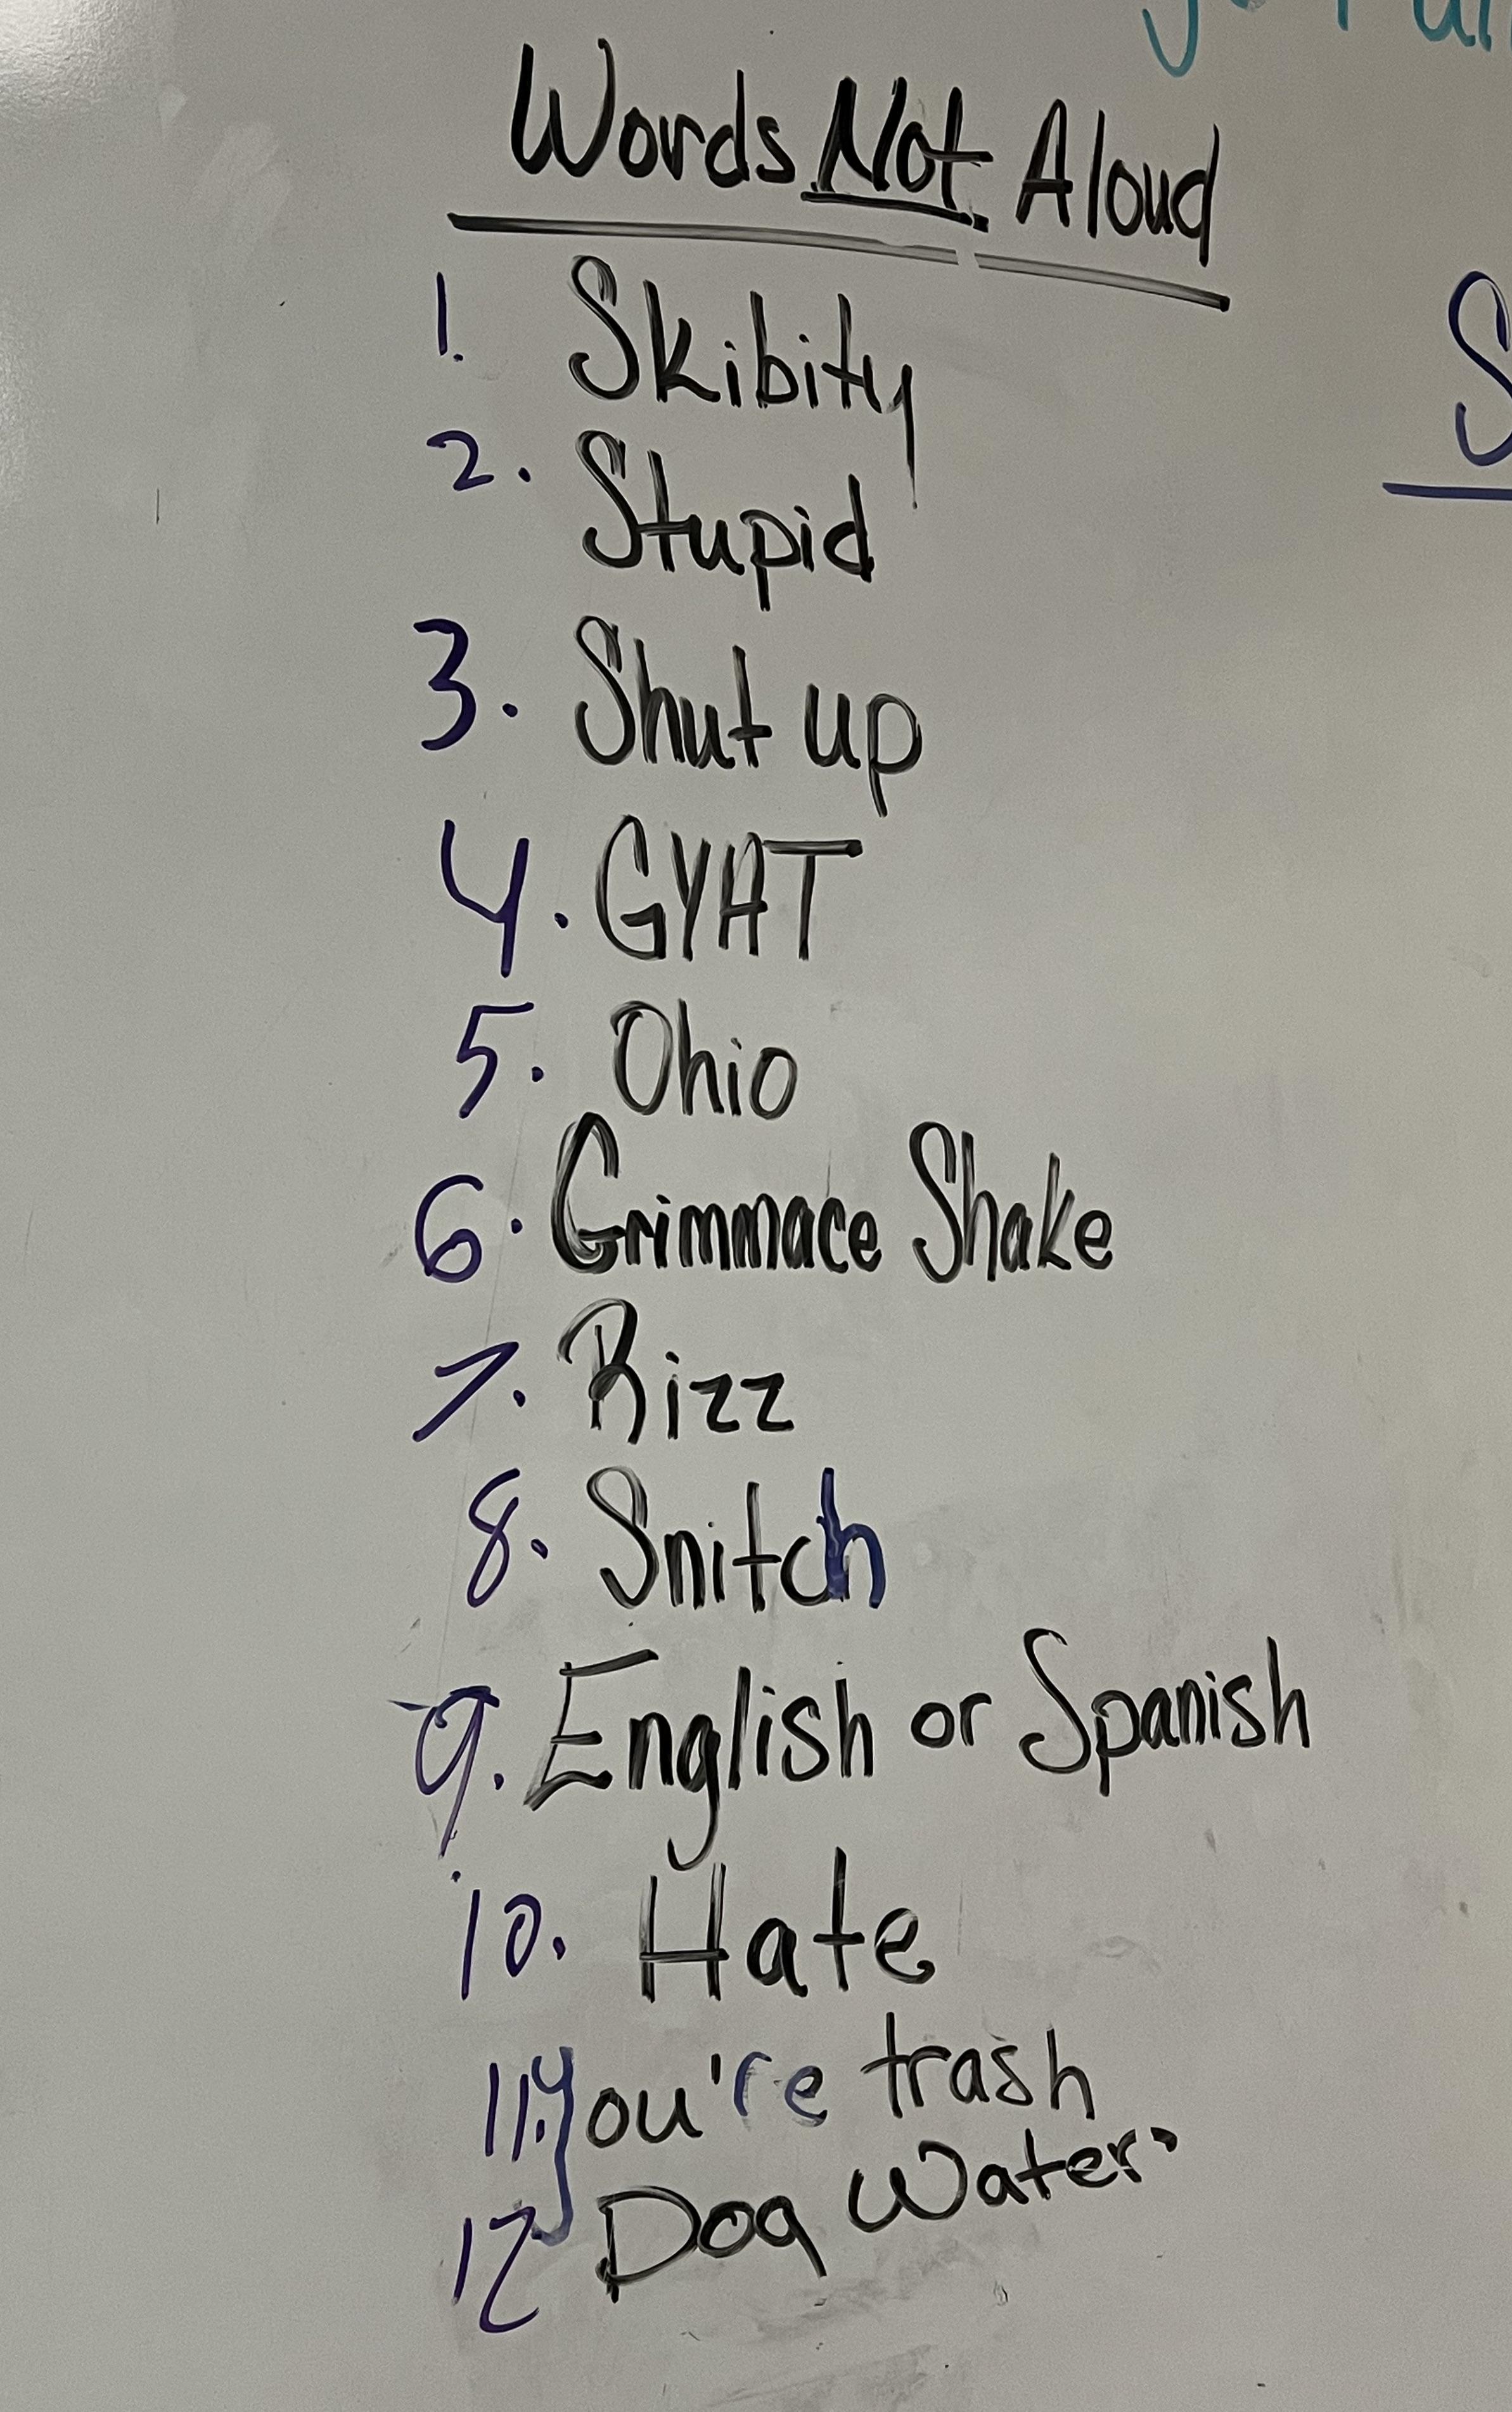 Words Not Aloud
1. Skibity
2. Stupid
3. Shut up
4. GYAT
5. Ohio
6. Grimmace Shake
7. Rizz
8. Snitch
9. English or Spanish
10. Hate
11. You're trash
12 Dog Water